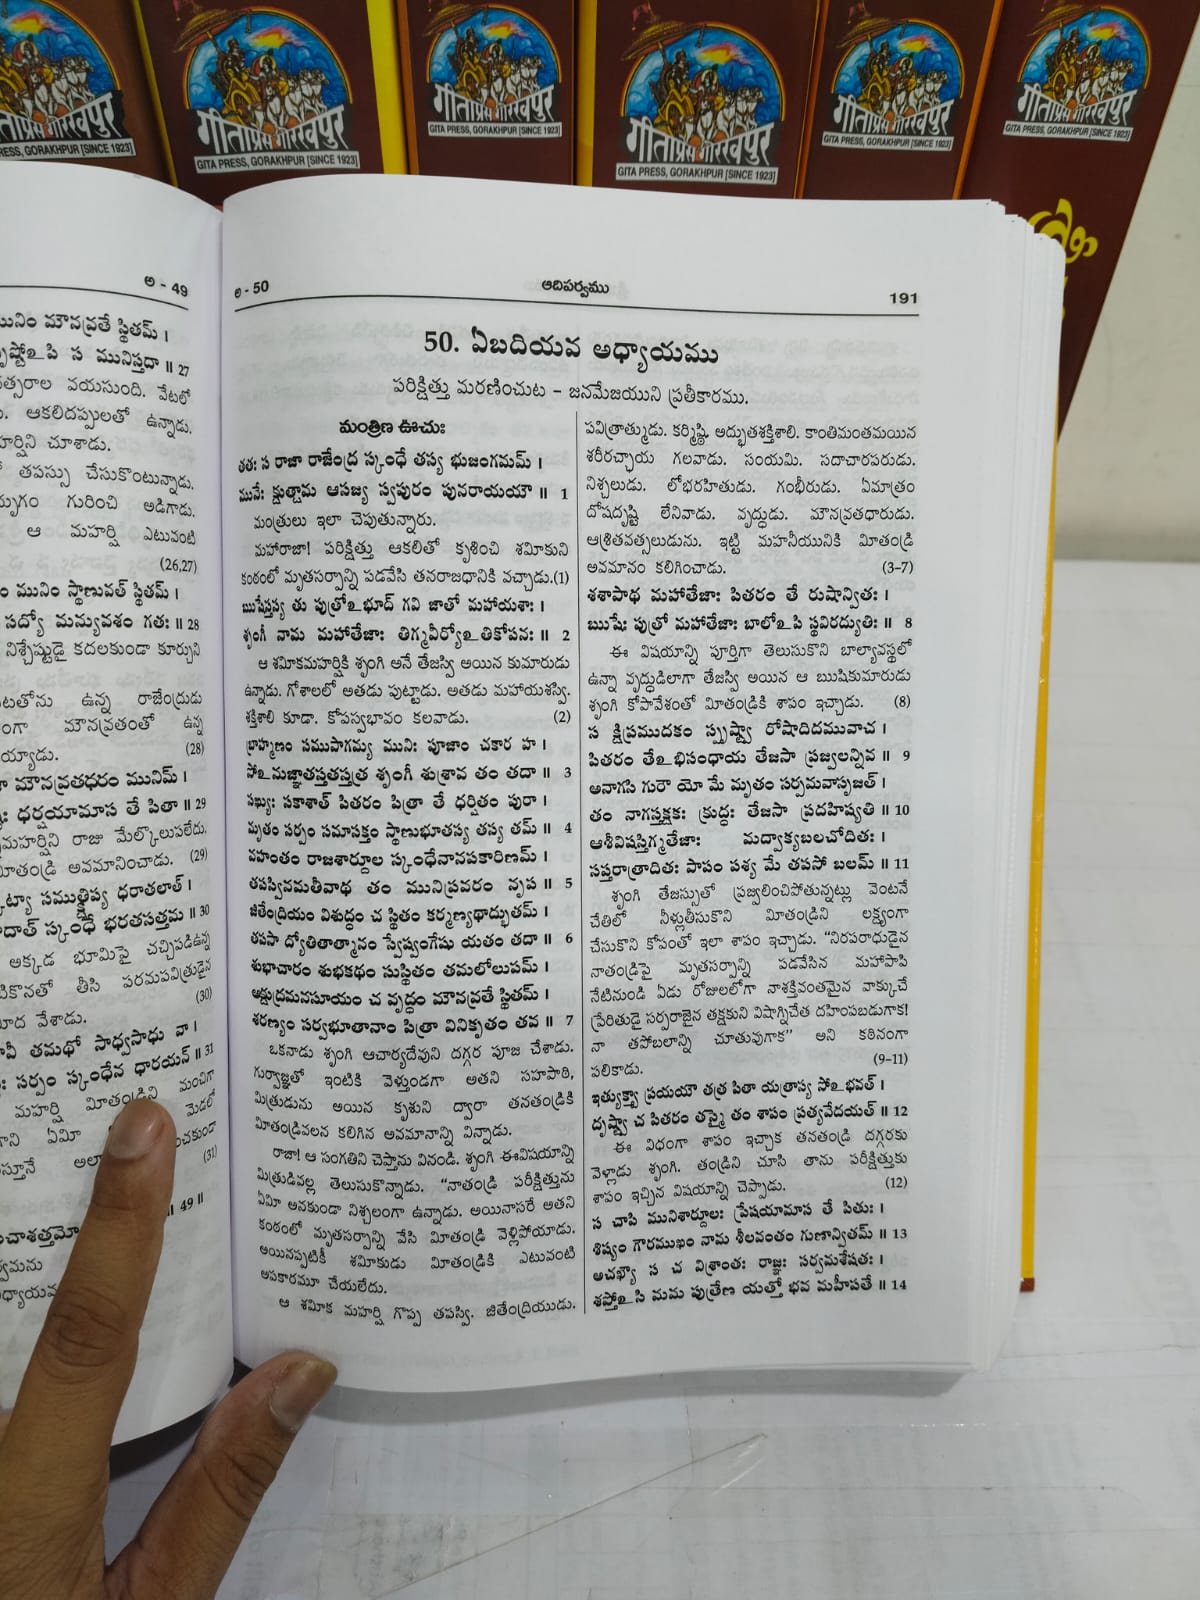 गीताप्रेस गोरखपुर
PRESS, GORAKHPUR [SINCE 1923]
गीताप्रेस गोरखपुर
GITA PRESS, GORAKHPUR [SINCE 1923]
गीताप्रेस गोरखपुर
GITA PRESS, GORAKHPUR [SINCE 1923]
गीताप्रेस गोरखपुर
GITA PRESS, GORAKHPUR [SINCE 1923]
गीताप्रेस गोरखपुर
GITA PRESS, GORAKHPUR [SINCE 1923]
गीताप्रेस गोरखपुर
GITA PRESS, GORAKHPUR [SINCE 1923]
అ - 49
మౌనవ్రతే స్థితమ్ ।
పి స మునిస్తదా ॥ 27
వయసుంది. వేటలో
ఆకలిదప్పులతో ఉన్నాడు.
చూశాడు.
తపస్సు చేసుకొంటున్నాడు.
గురించి అడిగాడు.
ఆ మహర్షి ఎటువంటి
(26,27)
మునిం స్థాణువత్ స్థితమ్ ।
సద్యో మన్యువశం గతః ॥ 28
నిశ్చేష్టుడై కదలకుండా కూర్చుని
ఉన్న రాజేంద్రుడు
మౌనవ్రతంతో ఉన్న
(28)
మౌనవ్రతధరం మునిమ్ ।
ధర్షయామాస తే పితా ॥ 29
రాజు మేల్కొలుపలేదు.
అవమానించాడు. (29)
సముత్క్షిప్య ధరాతలాత్ ।
స్కంధే భరతసత్తమ ॥ 30
అక్కడ భూమిపై చచ్చిపడిఉన్న
తీసి పరమపవిత్రుడైన
వేశాడు. (30)
తమథో సాధ్వసాధు వా ।
సర్పం స్కంధేన ధారయన్ ॥ 31
మహర్షి మీతండ్రిని మంచిగా
ఏమీ మెడలో
(31)
॥ 49 ॥
అ - 50 ఆదిపర్వము 191
50. ఏబదియవ అధ్యాయము
పరిక్షిత్తు మరణించుట - జనమేజయుని ప్రతీకారము.
మంత్రిణ ఊచుః
తతః స రాజా రాజేంద్ర స్కంధే తస్య భుజంగమమ్ ।
మునేః క్షుత్క్షామ ఆసజ్య స్వపురం పునరాయయౌ ॥ 1
మంత్రులు ఇలా చెపుతున్నారు.
మహారాజా! పరిక్షిత్తు ఆకలితో కృశించి శమీకుని
కంఠంలో మృతసర్పాన్ని పడవేసి తనరాజధానికి వచ్చాడు.(1)
ఋషేస్తస్య తు పుత్రోఽభూద్ గవి జాతో మహాయశాః ।
శృంగీ నామ మహాతేజాః తిగ్మవీర్యోఽతికోపనః ॥ 2
ఆ శమీకమహర్షికి శృంగి అనే తేజస్వి అయిన కుమారుడు
ఉన్నాడు. గోశాలలో అతడు పుట్టాడు. అతడు మహాయశస్వి.
శక్తిశాలి కూడా. కోపస్వభావం కలవాడు. (2)
బ్రాహ్మణం సముపాగమ్య మునిః పూజాం చకార హ ।
సోఽనుజ్ఞాతస్తతస్తత్ర శృంగీ శుశ్రావ తం తదా ॥ 3
సఖ్యుః సకాశాత్ పితరం పిత్రా తే ధర్షితం పురా ।
మృతం సర్పం సమాసక్తం స్థాణుభూతస్య తస్య తమ్ ॥ 4
వహంతం రాజశార్దూల స్కంధేనానపకారిణమ్ ।
తపస్వినమతీవాథ తం మునిప్రవరం నృప ॥ 5
జితేంద్రియం విశుద్ధం చ స్థితం కర్మణ్యథాద్భుతమ్ ।
తపసా ద్యోతితాత్మానం స్వేష్వంగేషు యతం తదా ॥ 6
శుభాచారం శుభకథం సుస్థితం తమలోలుపమ్ ।
అక్షుద్రమనసూయం చ వృద్ధం మౌనవ్రతే స్థితమ్ ।
శరణ్యం సర్వభూతానాం పిత్రా వినికృతం తవ ॥ 7
ఒకనాడు శృంగి ఆచార్యదేవుని దగ్గర పూజ చేశాడు.
గుర్వాజ్ఞతో ఇంటికి వెళ్తుండగా అతని సహపాఠి,
మిత్రుడును అయిన కృశుని ద్వారా తనతండ్రికి
మీతండ్రివలన కలిగిన అవమానాన్ని విన్నాడు.
రాజా! ఆ సంగతిని చెప్తాను వినండి. శృంగి ఈవిషయాన్ని
మిత్రుడివల్ల తెలుసుకొన్నాడు. "నాతండ్రి పరీక్షిత్తును
ఏమీ అనకుండా నిశ్చలంగా ఉన్నాడు. అయినాసరే అతని
కంఠంలో మృతసర్పాన్ని వేసి మీతండ్రి వెళ్లిపోయాడు.
అయినప్పటికీ శమీకుడు మీతండ్రికి ఎటువంటి
అపకారమూ చేయలేదు.
ఆ శమీక మహర్షి గొప్ప తపస్వి. జితేంద్రియుడు.
పవిత్రాత్ముడు. కర్మిష్ఠి. అద్భుతశక్తిశాలి. కాంతిమంతమయిన
శరీరచ్ఛాయ గలవాడు. సంయమి. సదాచారపరుడు.
నిశ్చలుడు. లోభరహితుడు. గంభీరుడు. ఏమాత్రం
దోషదృష్టి లేనివాడు. వృద్ధుడు. మౌనవ్రతధారుడు.
ఆశ్రితవత్సలుడును. ఇట్టి మహనీయునికి మీతండ్రి
అవమానం కలిగించాడు. (3-7)
శశాపాథ మహాతేజాః పితరం తే రుషాన్వితః ।
ఋషేః పుత్రో మహాతేజాః బాలోఽపి స్థవిరద్యుతిః ॥ 8
ఈ విషయాన్ని పూర్తిగా తెలుసుకొని బాల్యావస్థలో
ఉన్నా వృద్ధుడిలాగా తేజస్వి అయిన ఆ ఋషికుమారుడు
శృంగి కోపావేశంతో మీతండ్రికి శాపం ఇచ్చాడు. (8)
స క్షిప్రముదకం స్పృష్ట్వా రోషాదిదమువాచ ।
పితరం తేఽభిసంధాయ తేజసా ప్రజ్వలన్నివ ॥ 9
అనాగసి గురౌ యో మే మృతం సర్పమవాసృజత్ ।
తం నాగస్తక్షకః క్రుద్ధః తేజసా ప్రదహిష్యతి ॥ 10
ఆశీవిషస్తిగ్మతేజాః మద్వాక్యబలచోదితః ।
సప్తరాత్రాదితః పాపం పశ్య మే తపసో బలమ్ ॥ 11
శృంగి తేజస్సుతో ప్రజ్వలించిపోతున్నట్లు వెంటనే
చేతిలో నీళ్లుతీసుకొని మీతండ్రిని లక్ష్యంగా
చేసుకొని కోపంతో ఇలా శాపం ఇచ్చాడు. "నిరపరాధుడైన
నాతండ్రిపై మృతసర్పాన్ని పడవేసిన మహాపాపి
నేటినుండి ఏడు రోజులలోగా నాశక్తివంతమైన వాక్కుచే
ప్రేరితుడై సర్పరాజైన తక్షకుని విషాగ్నిచేత దహింపబడుగాక!
నా తపోబలాన్ని చూతువుగాక" అని కఠినంగా
పలికాడు. (9-11)
ఇత్యుక్త్వా ప్రయయౌ తత్ర పితా యత్రాస్య సోఽభవత్ ।
దృష్ట్వా చ పితరం తస్మై తం శాపం ప్రత్యవేదయత్ ॥ 12
ఈ విధంగా శాపం ఇచ్చాక తనతండ్రి దగ్గరకు
వెళ్లాడు శృంగి. తండ్రిని చూసి తాను పరీక్షిత్తుకు
శాపం ఇచ్చిన విషయాన్ని చెప్పాడు. (12)
స చాపి మునిశార్దూలః ప్రేషయామాస తే పితుః ।
శిష్యం గౌరముఖం నామ శీలవంతం గుణాన్వితమ్ ॥ 13
ఆచఖ్యౌ స చ విశ్రాంతః రాజ్ఞః సర్వమశేషతః ।
శప్తోఽసి మమ పుత్రేణ యత్తో భవ మహీపతే ॥ 14